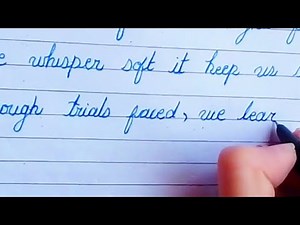 whisper soft it keep us
trials faced, we lear